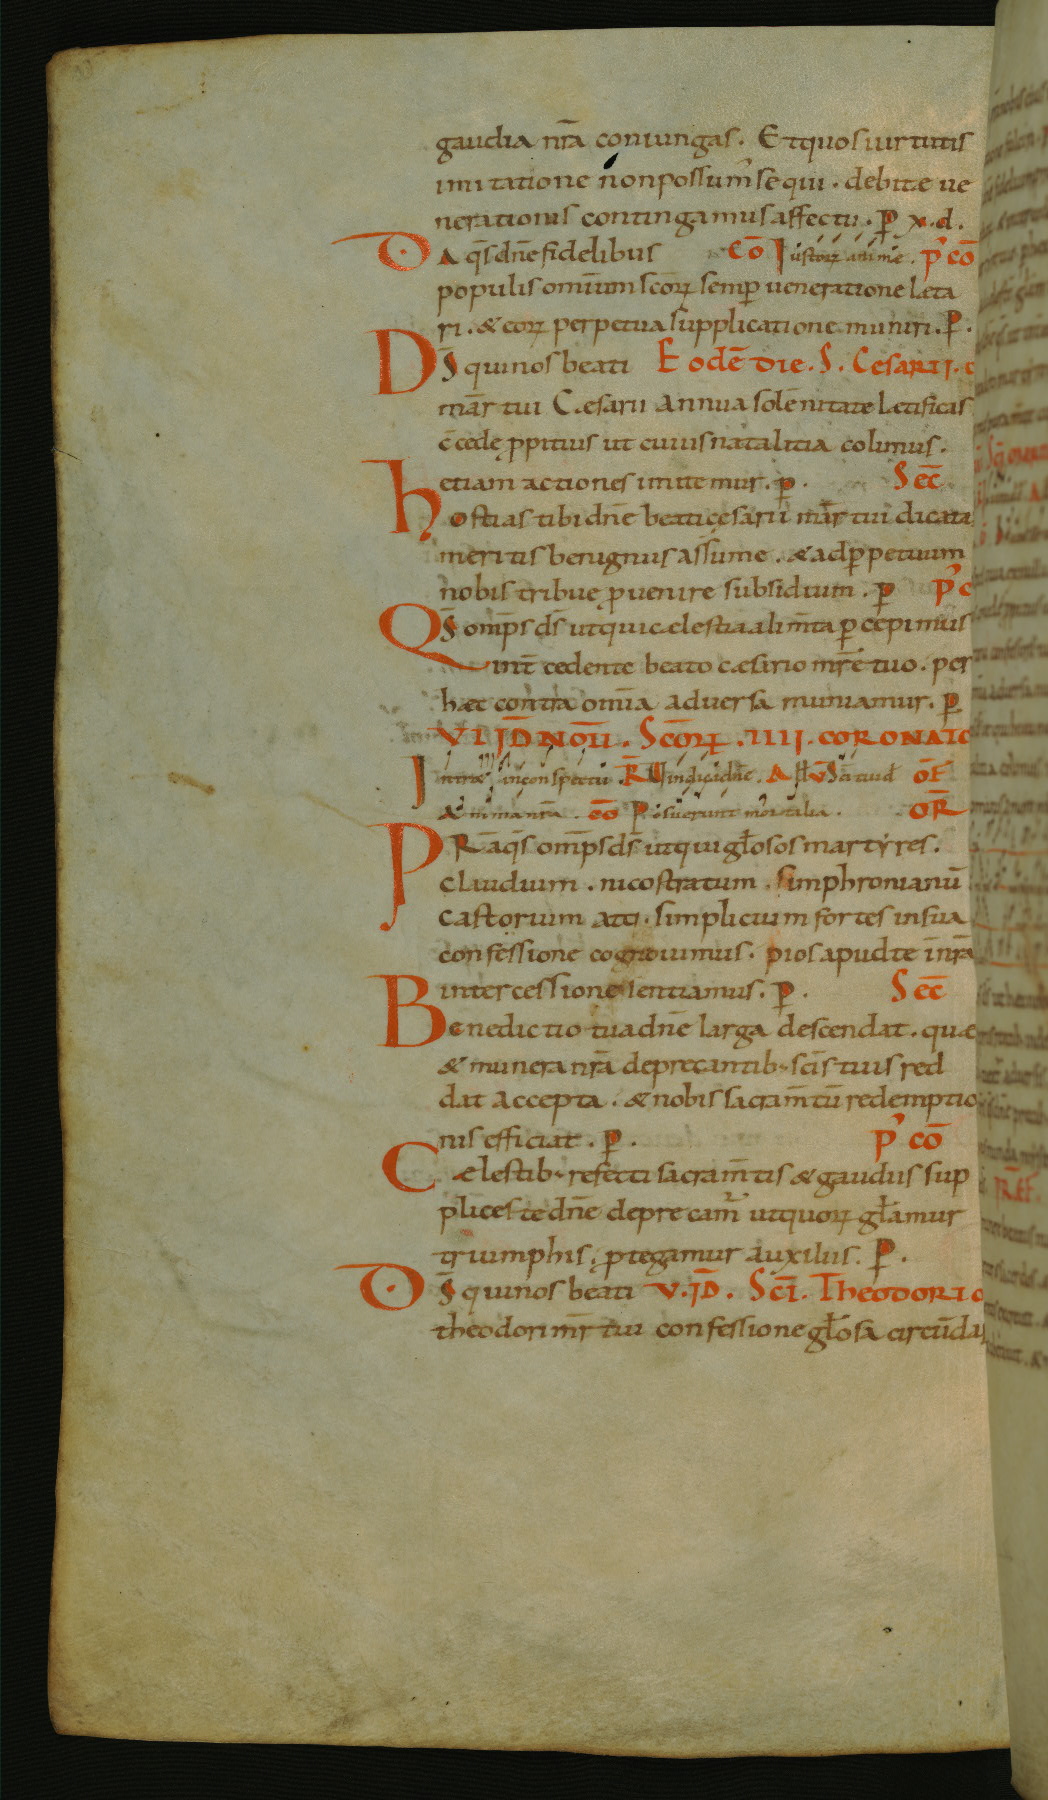 gaudia nr̄a coniungas. Et quos uirtutis
imitatione non possum' sequi. debitæ ue
nerationis contingamus affectu. P̄ x. d.
DA q̄s dn̄e fidelibus cō Iustorꝝ animæ. p' cō
populis omīum scōrꝝ semꝑ ueneratione læta
ri. & eorꝝ perpetua supplicatione muniri. P̄.
Dꞩ̄ qui nos beati Eodē die. S. Cesarii.
mār tui Cæsarii annua solēnitate lætificas
c̄cede ꝓpitius ut cuius natalitia colimus.
etiam actiones imitemur. p̄. Sec̄
hostias tibi dn̄e beati cęsarii mār tui dicata
meritis benignus assume. & ad ꝑpetuum
nobis tribue ꝓuenire subsidium. p̄ p' c
Qꞩ̄ omp̄s ds̄ ut qui cælestia alim̄ta ꝑcepimus
int̄cedente beato cæsario mr̄e tuo. per
hæc contra omīa aduersa muniamur. P̄
VI ID NOŪ. Scōrꝝ. IIII. CORONATO
Intret in conspectu. R̄ Uindica dn̄e. A ll̄ V̄ Sc̄i tui d̄ ōF
Anima nr̄a. cō Posuerunt mortalia. OR̄
PRǣ q̄s omp̄s ds̄ ut qui gl̄osos martyres.
claudium. nicostratum. simphronianū
castorium atq. simplicium fortes in sua
confessione cognouimus. pios apud te in nr̄a
intercessione sentiamus. P̄. Sec̄
Benedictio tua dn̄e larga descendat. quæ
& munera nr̄a deprecantib; sc̄is tuis red
dat accepta. & nobis sacram̄tū redemptio
nis efficiat. P̄. p' cō
Cælestib; refecti sacram̄tis & gaudiis sup
plices te dn̄e deprecam' ut quorꝝ gl̄amur
triumphis, ꝓtegamur auxiliis. P̄.
Dꞩ̄ qui nos beati V. ID. Sc̄i. Theodori
theodori mr̄ tui confessione gl̄osa circūda